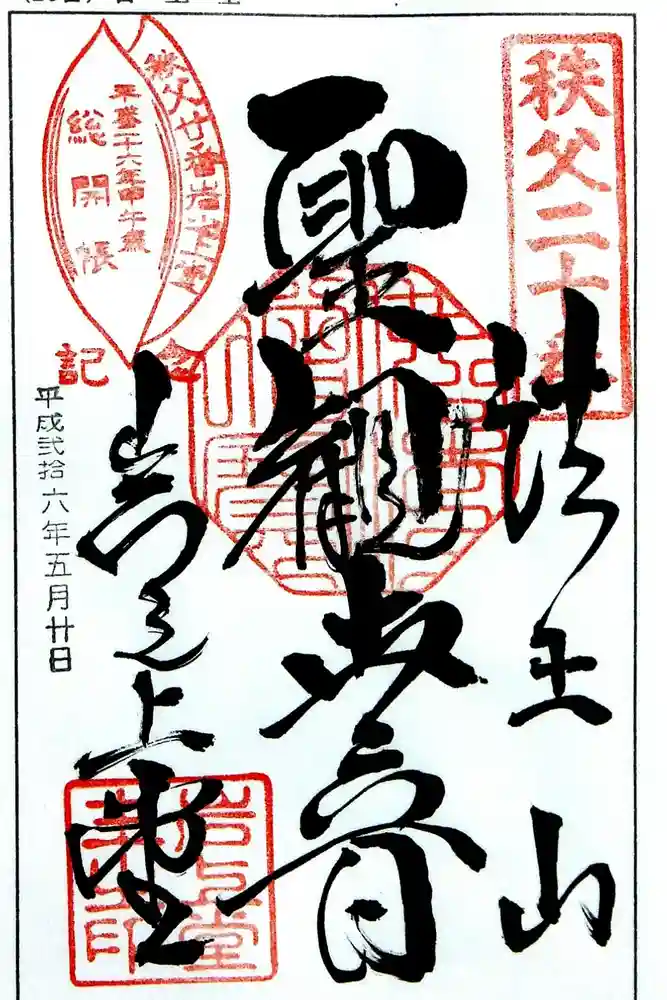 秩父二十番
法王山
聖観世音
岩之上堂
秩父廿番岩上堂
平成二十六年甲午歳
総開帳
記念
平成弐拾六年五月廿日
岩上堂